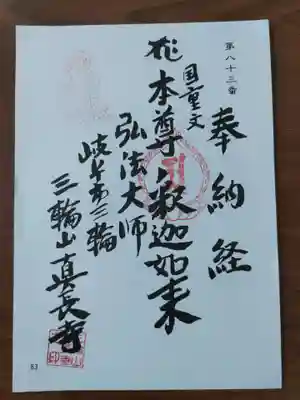 第八十三番
奉納経
国重文
本尊釈迦如来
弘法大師
岐阜市三輪
三輪山真長寺
83